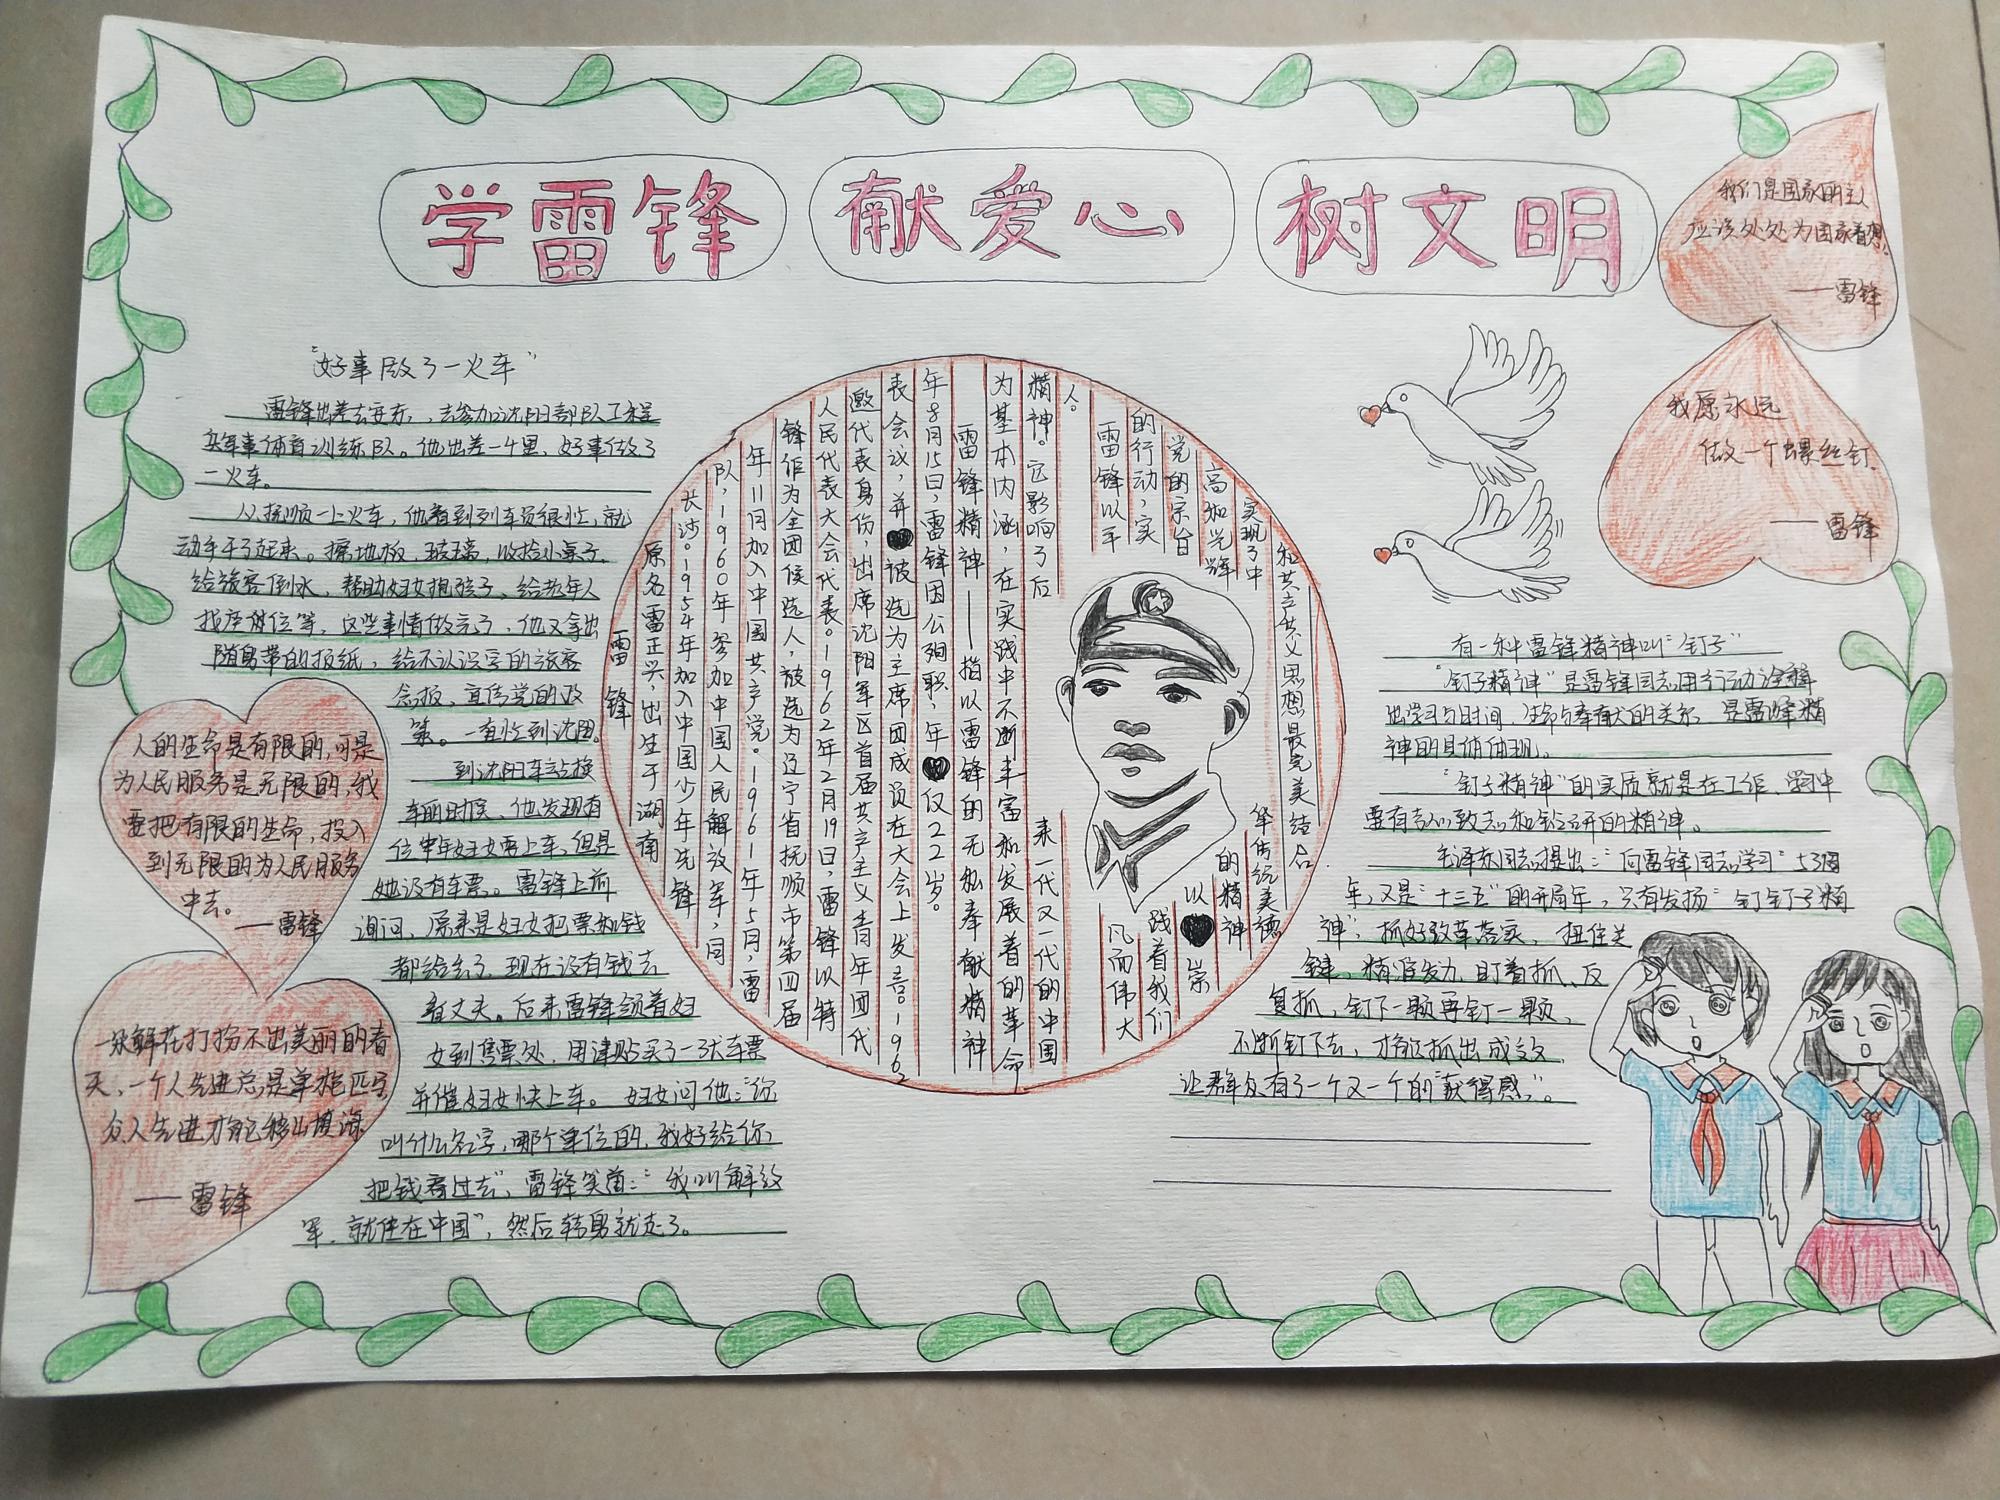 学雷锋 献爱心 树文明
我们是国家的主人
应该处处为国家着想。
——雷锋
我愿永远
做一个螺丝钉
——雷锋
"好事做了一火车"
雷锋出差去安东,去参加沈阳部队工程
军事体育训练队。他出差一千里,好事做了
一火车。
从抚顺一上火车,他看到列车员很忙,就
动手干了起来。擦地板,玻璃,收拾小桌子,
给旅客倒水,帮助妇女抱孩子,给老年人
找座位等,这些事情做完了,他又拿出
随身带的报纸,给不认识字的旅客
念报,宣传党的政
策。一直忙到沈阳。
到沈阳车站换
车的时候,他发现有
位中年妇女要上车,但是
她没有车票。雷锋上前
询问,原来是妇女把票和钱
都给丢了,现在没有钱去
看丈夫。后来雷锋领着妇
女到售票处,用津贴买了一张车票
并催妇女快上车。妇女问他:"你
叫什么名字,哪个单位的,我好给你
把钱寄过去",雷锋笑道:"我叫解放
军,就住在中国",然后转身就走了。
人的生命是有限的,可是
为人民服务是无限的,我
要把有限的生命,投入
到无限的为人民服务
中去。
——雷锋
一朵鲜花打扮不出美丽的春
天,一个人先进总是单枪匹马,
众人先进才能移山填海
——雷锋
雷锋
原名雷正兴,出生于湖南
长沙。1954年加入中国少年先锋
队,1960年参加中国人民解放军,同
年11月加入中国共产党。1961年5月,雷
锋作为全团候选人,被选为辽宁省抚顺市第四届
人民代表大会代表。1962年2月19日,雷锋以特
邀代表身份,出席沈阳军区首届共产主义青年团代
表会议,并被选为主席团成员在大会上发言。1962
年8月15日,雷锋因公殉职,年仅22岁。
雷锋精神——指以雷锋的无私奉献精神
为基本内涵,在实践中不断丰富和发展着的革命
精神。它影响了后
来一代又一代的中国
人。
雷锋以平
凡而伟大
的行动,实
践着我们
党的宗旨
以崇
高和光辉
的精神
实现了中
华传统美德
和共产主义思想最完美结合
有一种雷锋精神叫"钉子"
"钉子精神"是雷锋同志用行动诠释
出学习与时间,生命与奉献的关系,是雷锋精
神的具体体现。
"钉子精神"的实质就是在工作、学习中
要有专心致志和钻研的精神。
毛泽东同志提出:"向雷锋同志学习"53周
年,又是"十三五"的开局年,只有发扬"钉钉子精
神",抓好改革落实,扭住关
键、精准发力,盯着抓、反
复抓,钉下一颗再钉一颗,
不断钉下去,才能抓出成效,
让群众有了一个又一个的"获得感"。